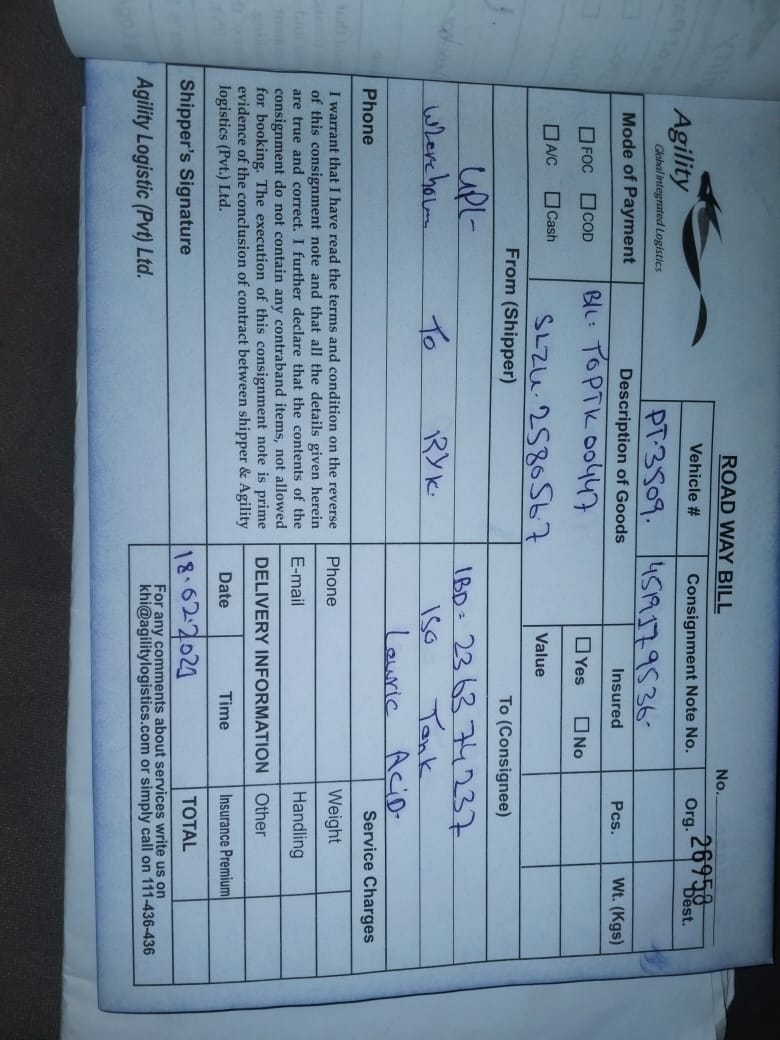 ROAD WAY BILL
No. 26958
Agility
Global Integrated Logistics
Vehicle # Consignment Note No. Org. Dest.
PT-3509. 4519179536-
Mode of Payment Description of Goods Insured Pcs. Wt. (Kgs)
FOC COD B/L: TOPTK00447 Yes No
A/C Cash SLZU.2580567 Value
From (Shipper) To (Consignee)
UPL- IBD= 236374237
To RYK. ISO Tank
Lauric ACiD-
Phone Service Charges
I warrant that I have read the terms and condition on the reverse
of this consignment note and that all the details given herein
are true and correct. I further declare that the contents of the
consignment do not contain any contraband items, not allowed
for booking. The execution of this consignment note is prime
evidence of the conclusion of contract between shipper & Agility
logistics (Pvt.) Ltd.
Phone Weight
E-mail Handling
DELIVERY INFORMATION Other
Date Time Insurance Premium
Shipper's Signature 18.02.2021 TOTAL
Agility Logistic (Pvt) Ltd.
For any comments about services write us on
khi@agilitylogistics.com or simply call on 111-436-436